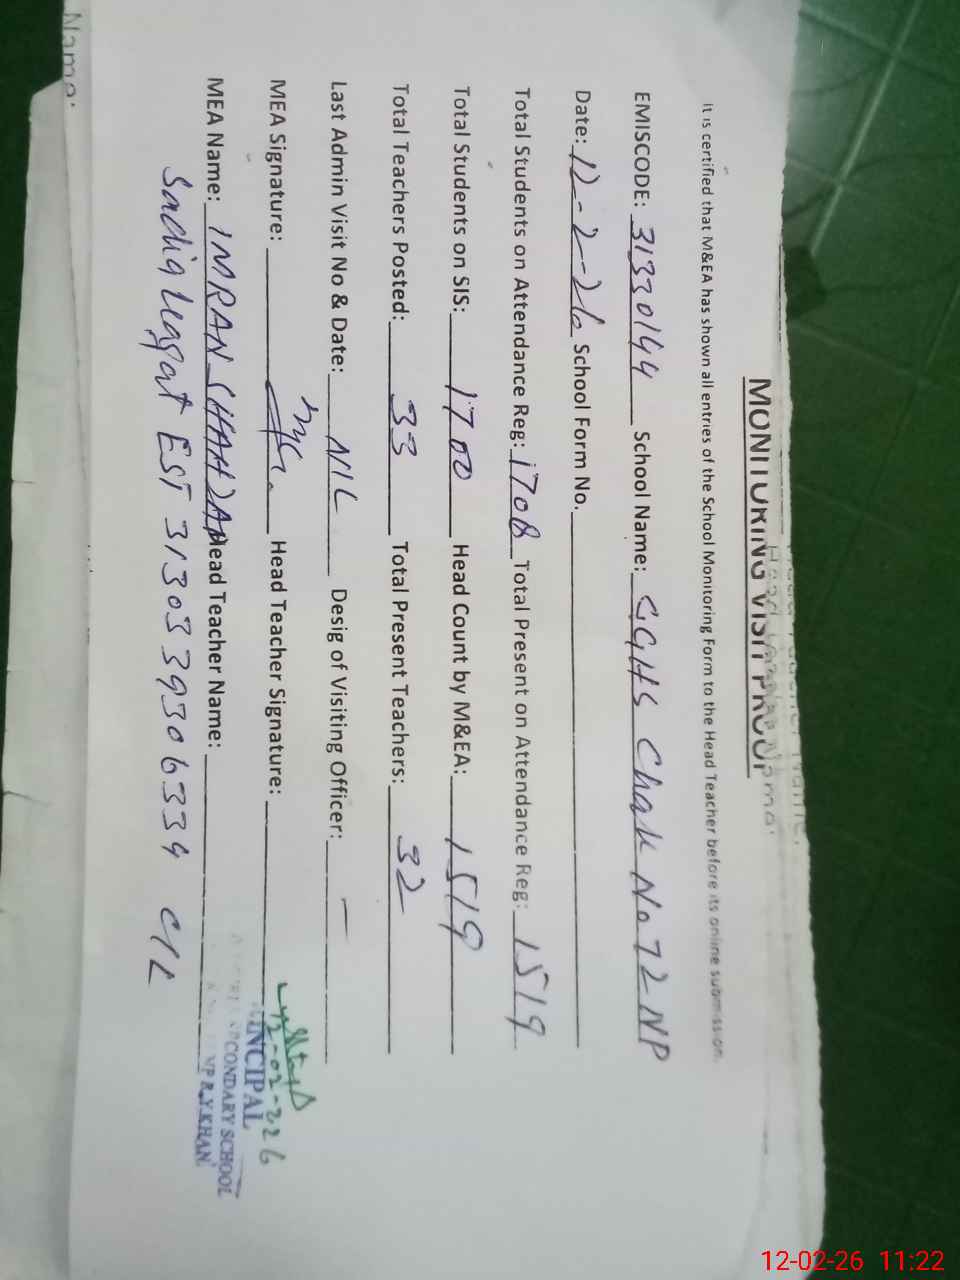 MONITORING VISIT PROOF
It is certified that M&EA has shown all entries of the School Monitoring Form to the Head Teacher before its online submission.
EMISCODE: 31330144 School Name: GGHS Chak No 72 NP
Date: 12-2-26 School Form No.
Total Students on Attendance Reg: 1708 Total Present on Attendance Reg: 1519
Total Students on SIS: 1700 Head Count by M&EA: 1519
Total Teachers Posted: 33 Total Present Teachers: 32
Last Admin Visit No & Date: NIL Desig of Visiting Officer: —
MEA Signature: Head Teacher Signature:
12-02-226
MEA Name: IMRAN SHAHZAD Head Teacher Name:
PRINCIPAL
SECONDARY SCHOOL
NP R.Y.KHAN.
Sadia EST 3130339306334 C/L
Name:
12-02-26 11:22